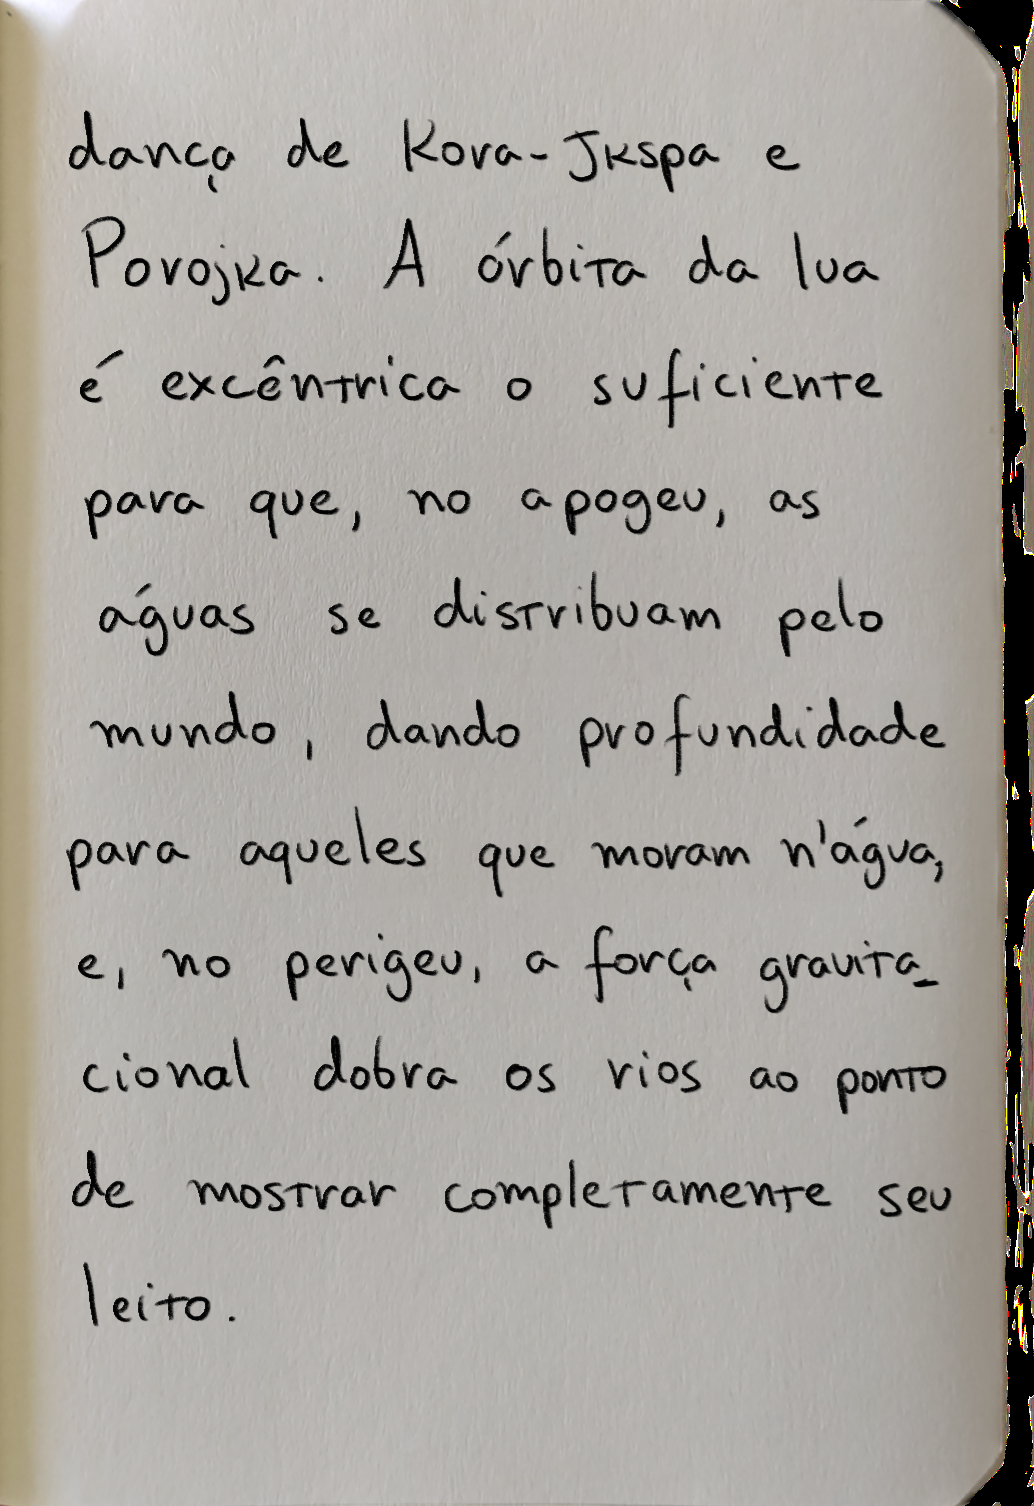 dança de Kova-Jkspa e
Povojka. A órbita da lua
é excêntrica o suficiente
para que, no apogeu, as
águas se distribuam pelo
mundo, dando profundidade
para aqueles que moram n'água,
e, no perigeu, a força gravita-
cional dobra os rios ao ponto
de mostrar completamente seu
leito.